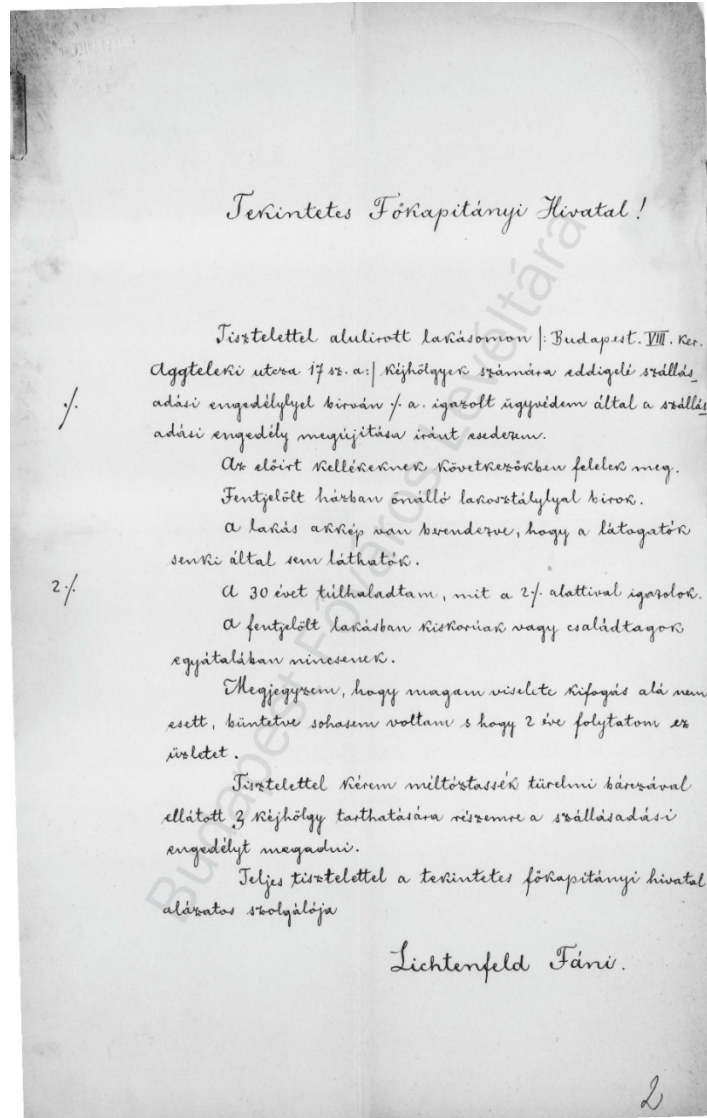 Tekintetes Főkapitányi Hivatal!
Tisztelettel alulirott lakásomon |: Budapest. VIII. ker.
Aggteleki utcza 17 sz. a:| kéjhölgyek számára eddigelé szállás_
./.
adási engedélylyel birván ./. a. igazolt ügyvédem által a szállás_
adási engedély megújítása iránt esedezem.
Az előirt kellékeknek következőkben felelek meg.
Fentjelölt házban önálló lakosztálylyal birok.
A lakás akkép van berendezve, hogy a látogatók
senki által sem láthatók.
2./.
A 30 évet túlhaladtam, mit a 2./. alattival igazolok.
A fentjelölt lakásban kiskorúak vagy családtagok
egyátalában nincsenek.
Megjegyzem, hogy magam viselete kifogás alá nem
esett, büntetve sohasem voltam s hogy 2 éve folytatom ez
üzletet.
Tisztelettel kérem méltóztassék türelmi bárczával
ellátott 3 kéjhölgy tarthatására részemre a szállásadási
engedélyt megadni.
Teljes tisztelettel a tekintetes főkapitányi hivatal
alázatos szolgálója
Lichtenfeld Fáni.
2
Budapest Főváros Levéltára